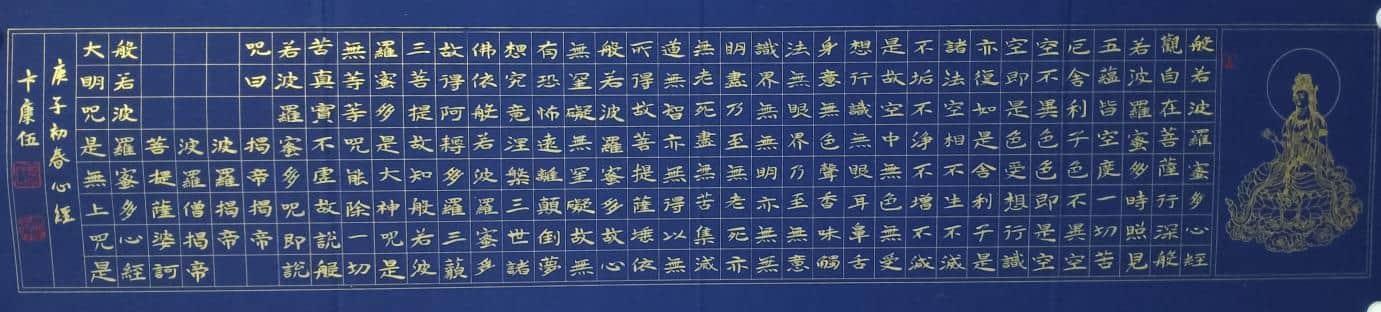 般若波羅蜜多心經
觀自在菩薩行深般
若波羅蜜多時照見
五蘊皆空度一切苦
厄舍利子色不異空
空不異色色即是空
空即是色受想行識
亦復如是舍利子是
諸法空相不生不滅
不垢不淨不增不減
是故空中無色無受
想行識無眼耳鼻舌
身意無色聲香味觸
法無眼界乃至無意
識界無無明亦無無
明盡乃至無老死亦
無老死盡無苦集滅
道無智亦無得以無
所得故菩提薩埵依
般若波羅蜜多故心
無罣礙無罣礙故無
有恐怖遠離顛倒夢
想究竟涅槃三世諸
佛依般若波羅蜜多
故得阿耨多羅三藐
三菩提故知般若波
羅蜜多是大神咒是
無等等咒能除一切
苦真實不虛故說般
若波羅蜜多咒即說
咒曰 揭帝揭帝
波羅揭帝
波羅僧揭帝
菩提薩婆訶
般若波羅蜜多心經
大明咒是無上咒是
庚子初春心經
卞康伍